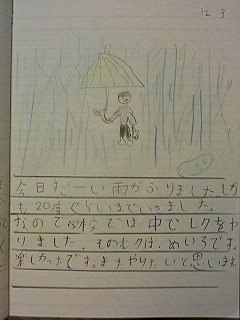 12 3
今日すごーい雨がふりました。しか
も20度ぐらいまでいきました。
なので学校では中でレクをや
りました。そのレクは、めいろです。
楽しかったです。またやりたいと思います。